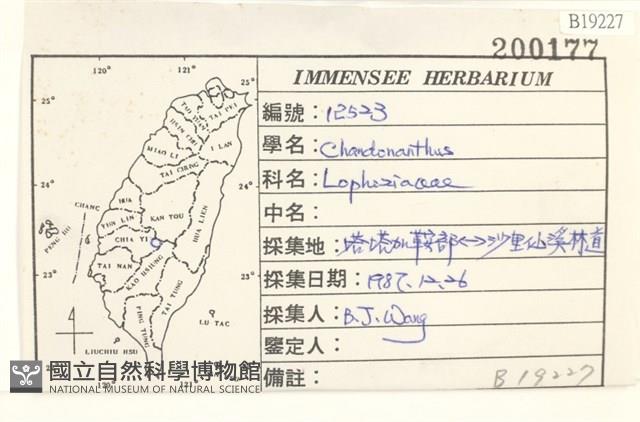 B19227
200177
IMMENSEE HERBARIUM
編號：12523
學名：Chandonanthus
科名：Lophoziaceae
中名：
採集地：塔塔加鞍部<->沙里仙溪林道
採集日期：1987.12.26
採集人：B.J. Wang
鑒定人：
備註：
B19227
120°
121°
25°
25°
TAO YUAN
TAI PEI
HSIN CHU
I LAN
MIAO LI
TAI CHUNG
24°
24°
CHANG HUA
HUA LIEN
NAN TOU
YUN LIN
PENG HU
CHIA YI
TAI NAN
KAO HSIUNG
23°
23°
TAI TUNG
PING TUNG
LU TAO
LIUCHIU HSU
120°
121°
國立自然科學博物館
NATIONAL MUSEUM OF NATURAL SCIENCE